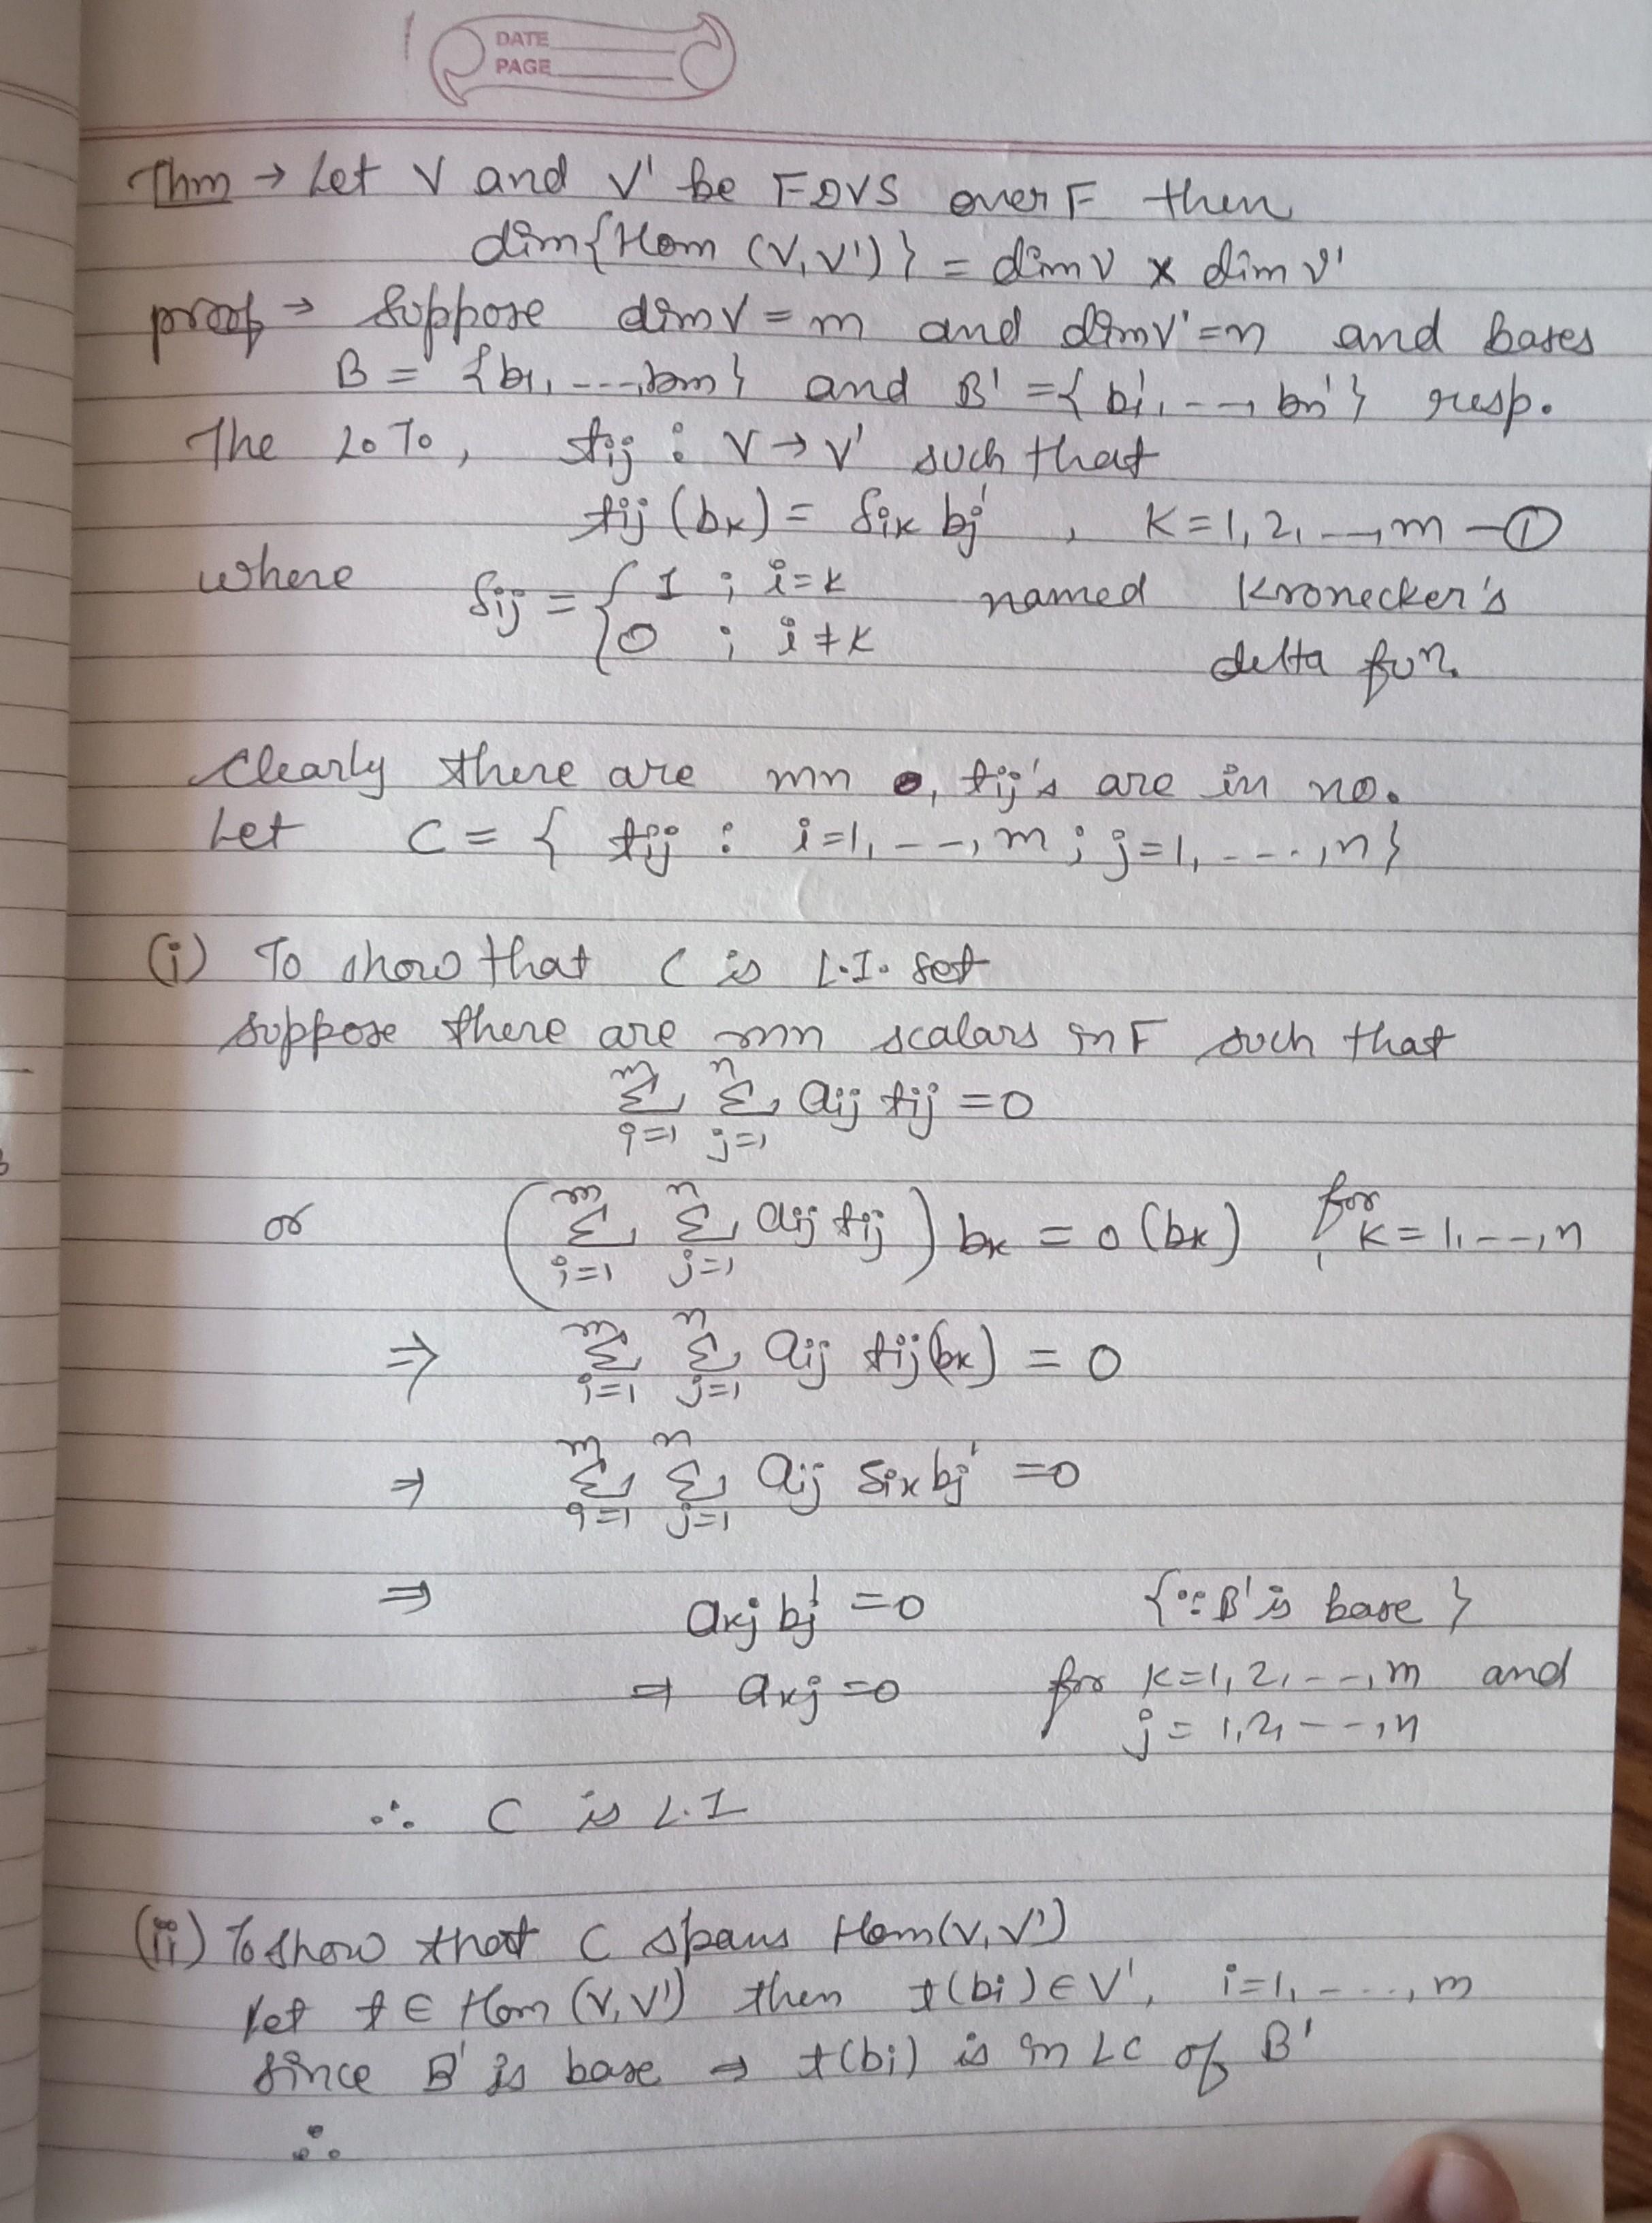 DATE
PAGE
Thm → Let V and V' be FDVS over F then
dim{Hom (V, V')} = dim V × dim V'
proof → Suppose dim V = m and dim V' = n and bases
B = {b1, ----, bm} and B' = {b1', --, bn'} resp.
The L.T., tij : V → V' such that
tij (bk) = δik bj' , K = 1, 2, --, m —①
where δij = { 1 ; i = k named Kronecker's
0 ; i ≠ k delta fun.
Clearly there are mn , tij's are in no.
Let C = { tij : i=1, ---, m ; j=1, ----, n}
(i) To show that C is L.I. set
suppose there are mn scalars in F such that
m∑i=1 n∑j=1 aij tij = 0
or (m∑i=1 n∑j=1 aij tij) bk = 0 (bk) for K = 1, ---, n
⇒ m∑i=1 n∑j=1 aij tij(bk) = 0
⇒ m∑i=1 n∑j=1 aij δik bj' = 0
⇒ akj bj' = 0 {∵ B' is base }
⇒ akj = 0 for K = 1, 2, ---, m and
j = 1, 2, ---, n
∴ C is L.I
(ii) To show that C spans Hom(V, V')
Let t ∈ Hom (V, V') then t(bi) ∈ V', i=1, ----, m
Since B' is base ⇒ t(bi) is in LC of B'
∴